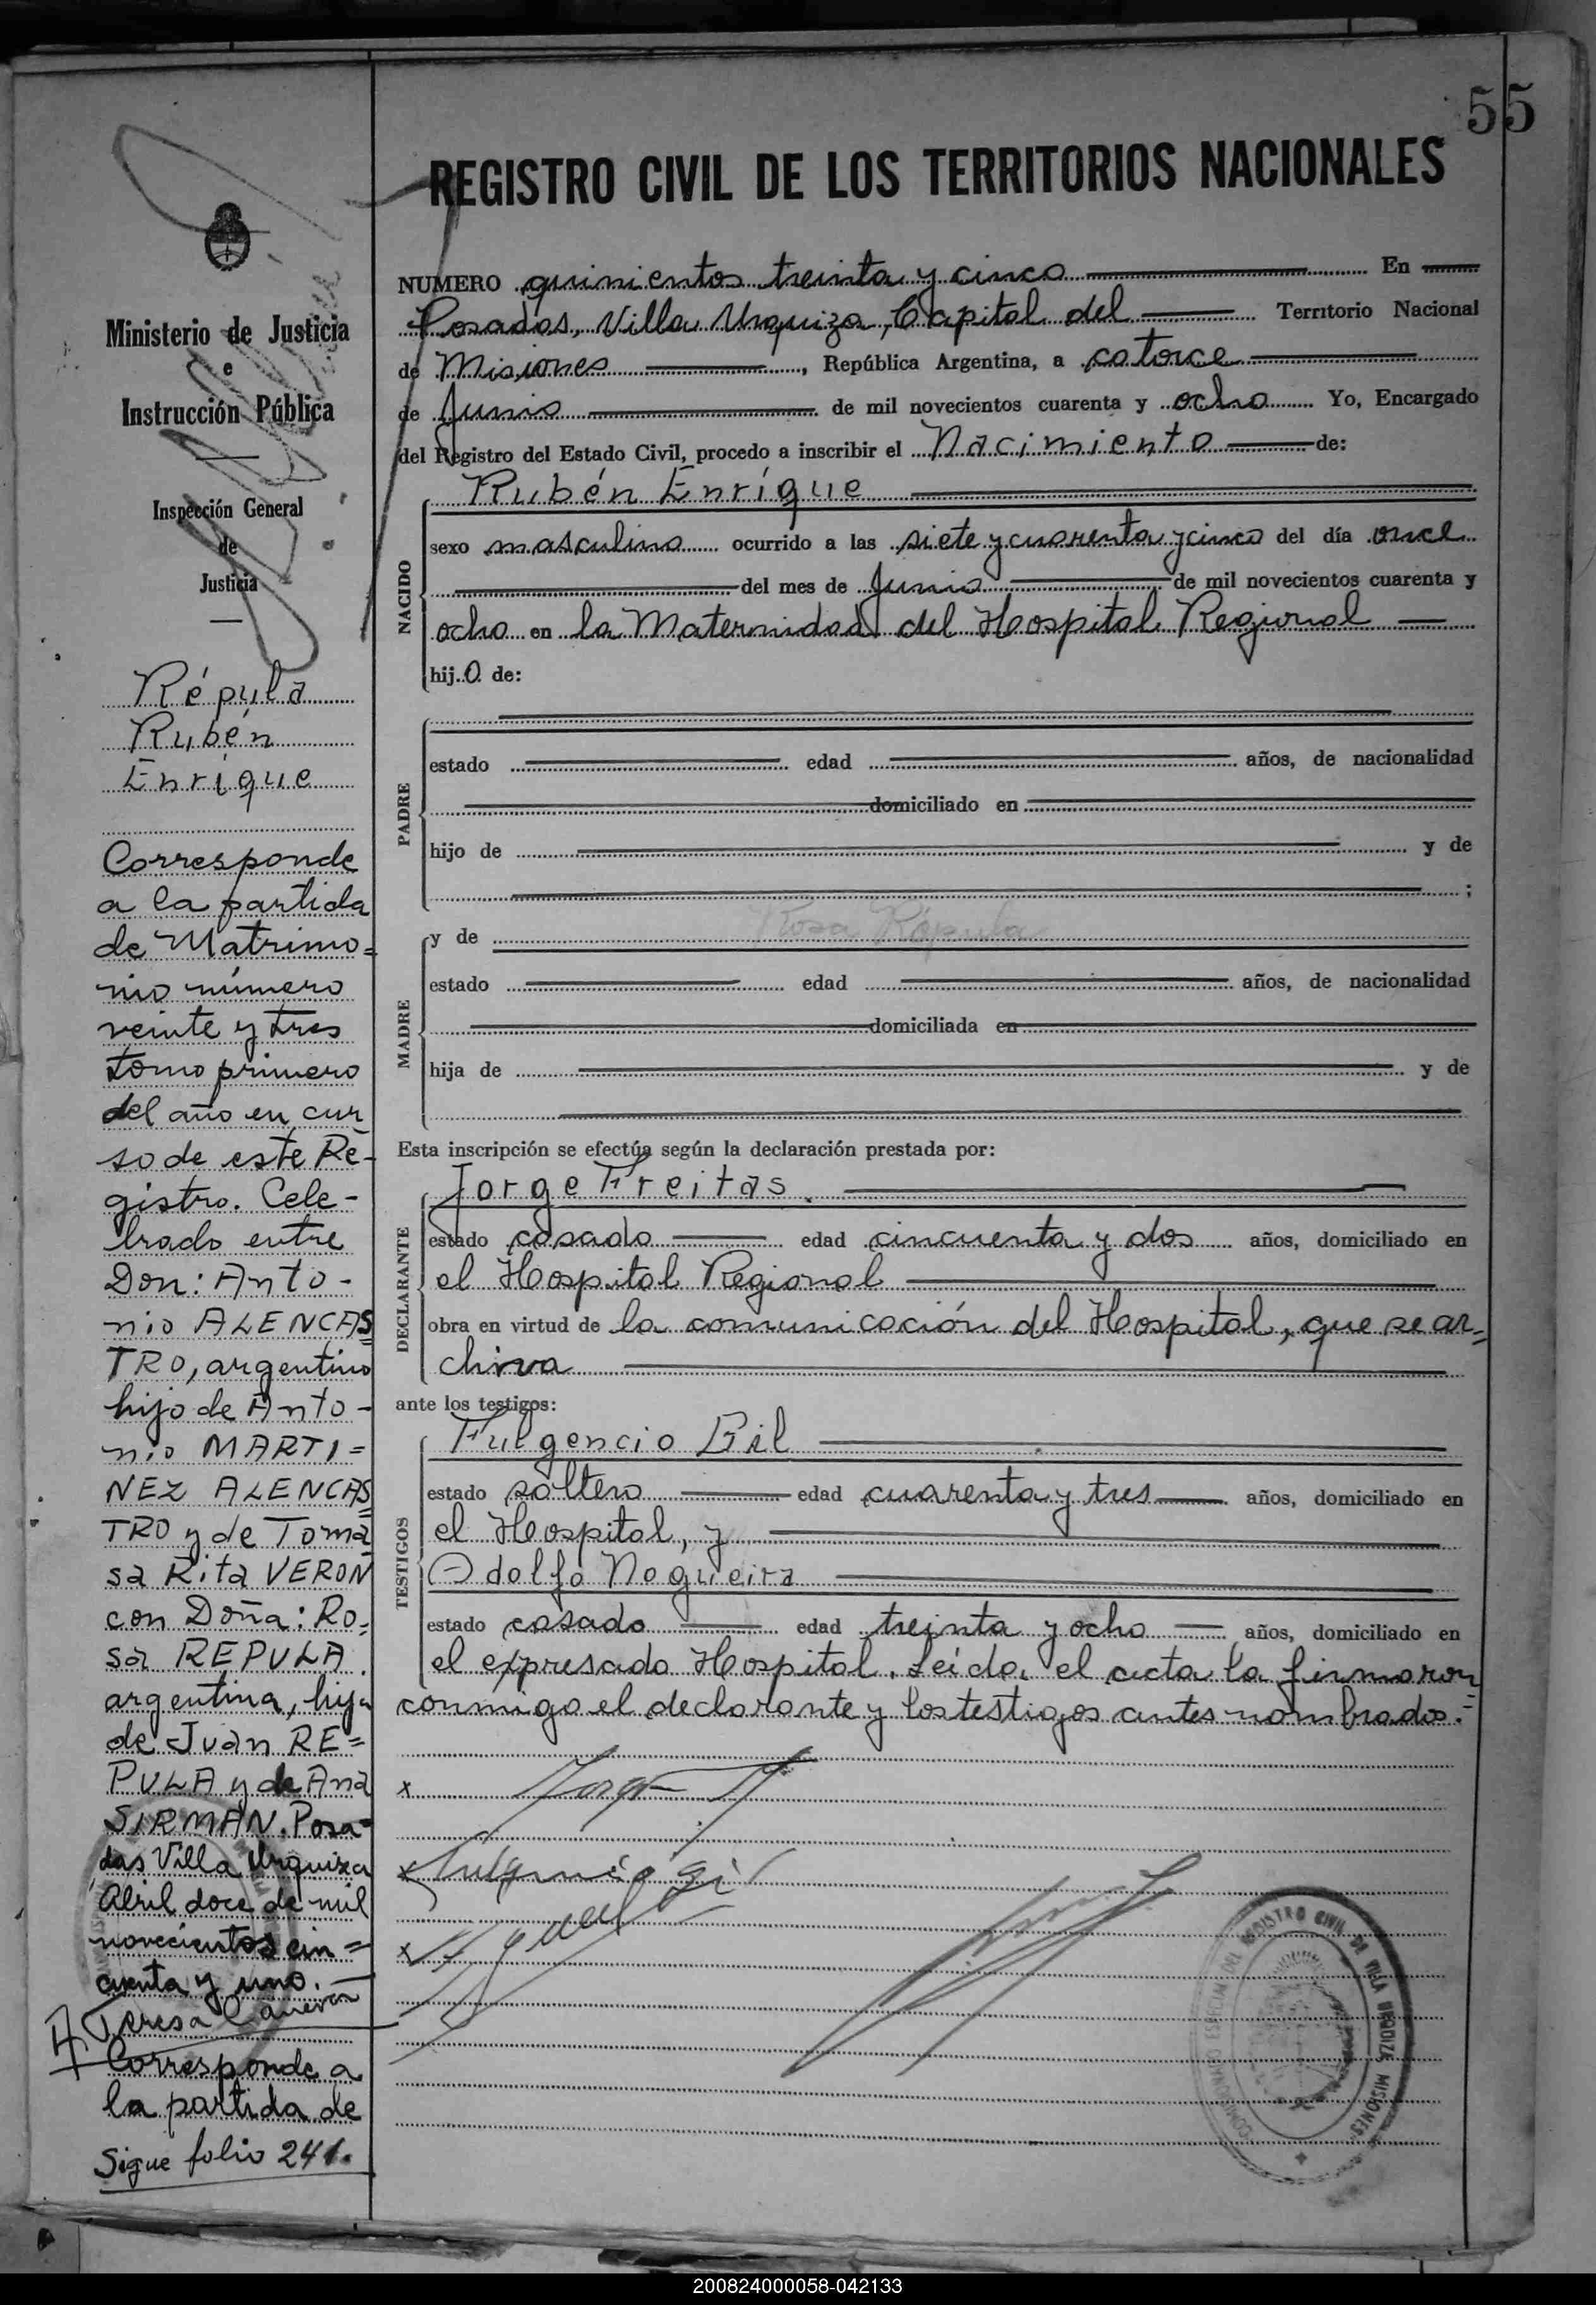 55
REGISTRO CIVIL DE LOS TERRITORIOS NACIONALES
Ministerio de Justicia
e
Instrucción Pública
Inspección General
de
Justicia
Répula
Rubén
Enrique
Corresponde
a la partida
de Matrimo=
nio número
veinte y tres
tomo primero
del año en cur
so de este Re-
gistro. Cele-
brado entre
Don: Anto-
nio ALENCAS
TRO, argentino
hijo de Anto-
nio MARTI=
NEZ ALENCAS
TRO y de Toma
sa Rita VERON
con Doña: Ro=
sa REPULA
argentina, hija
de Juan RE=
PULA y de Ana
SIRMAN. Posa=
das Villa Urquiza
Abril doce de mil
novecientos cin=
cuenta y uno.
Teresa
Corresponde a
la partida de
Sigue folio 241.
NUMERO quinientos treinta y cinco En
Posadas, Villa Urquiza, Capital del Territorio Nacional
de Misiones, República Argentina, a catorce
de Junio de mil novecientos cuarenta y ocho Yo, Encargado
del Registro del Estado Civil, procedo a inscribir el Nacimiento de:
NACIDO
Rubén Enrique
sexo masculino ocurrido a las siete y cuarenta y cinco del día once
del mes de Junio de mil novecientos cuarenta y
ocho en la Maternidad del Hospital Regional
hijo de:
PADRE
estado edad años, de nacionalidad
domiciliado en
hijo de y de
;
MADRE
y de Rosa Répula
estado edad años, de nacionalidad
domiciliada en
hija de y de
Esta inscripción se efectúa según la declaración prestada por:
DECLARANTE
Jorge Freitas.
estado casado edad cincuenta y dos años, domiciliado en
el Hospital Regional
obra en virtud de la comunicación del Hospital, que se ar=
chiva
ante los testigos:
TESTIGOS
Fulgencio Gil
estado soltero edad cuarenta y tres años, domiciliado en
el Hospital, y
Adolfo Nogueira
estado casado edad treinta y ocho años, domiciliado en
el expresado Hospital. Leída el acta la firmaron
conmigo el declarante y los testigos antes nombrados.=
x Jorge
x Fulgencio Gil
x
REGISTRO CIVIL DE VILLA URQUIZA MISIONES
200824000058-042133